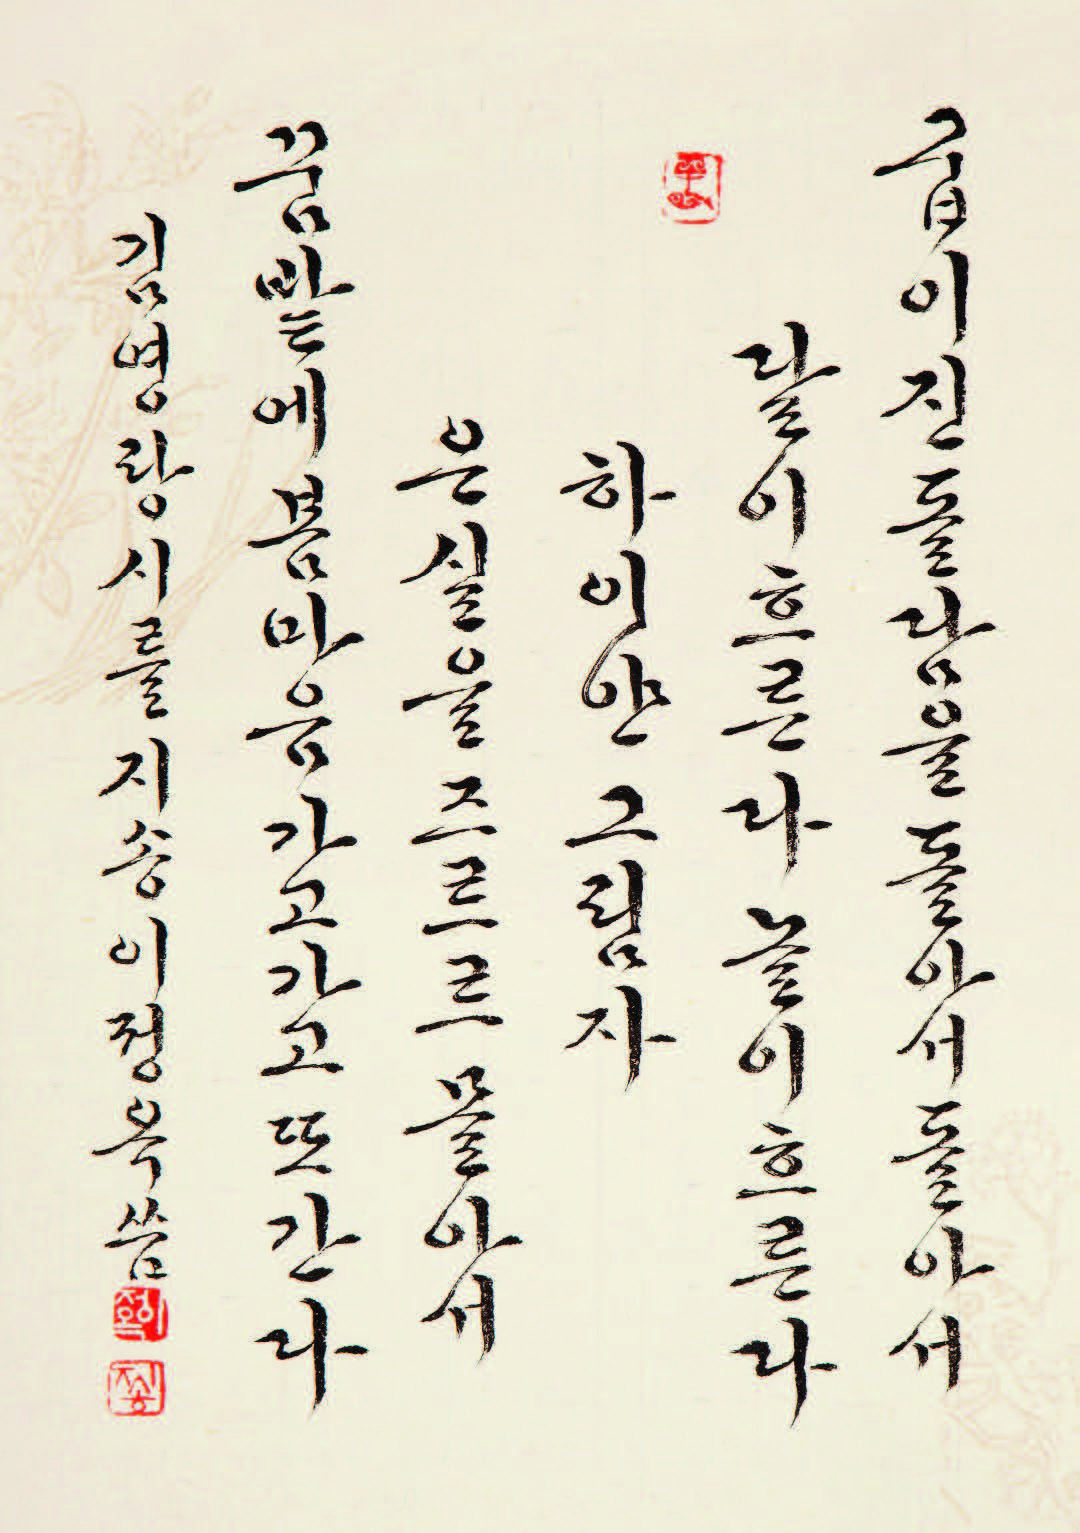 굽이진 돌담을 돌아서 돌아서
달이 흐른다 놀이 흐른다
하이얀 그림자
은실을 즈르르 몰아서
꿈밭에 봄마음 가고가고 또 간다
김영랑 시를 지송 이정옥 씀
이정옥
지송